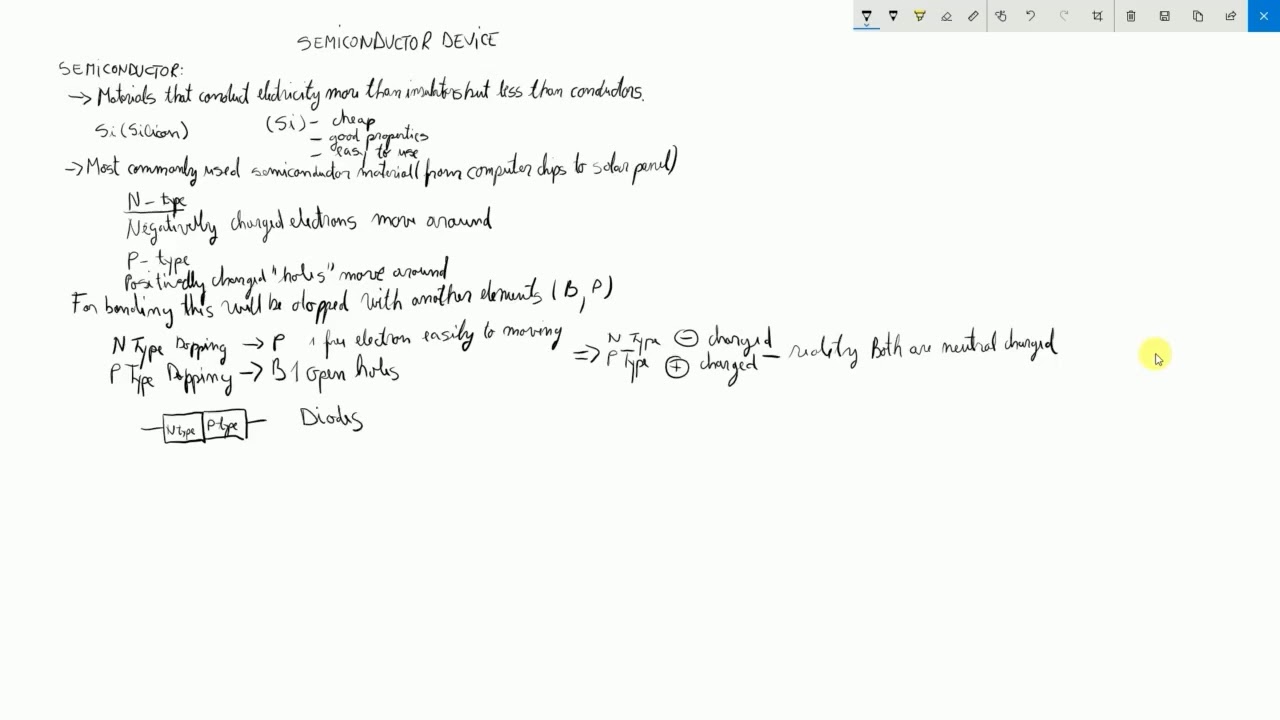 SEMICONDUCTOR DEVICE
SEMICONDUCTOR:
→ Materials that conduct electricity more than insulators but less than conductors.
Si (Silicon) (Si) – cheap
– good properties
– easy to use
→ Most commonly used semiconductor material (from computer chips to solar panel)
N – type
Negatively charged electrons move around
P – type
Positivedly changed "holes" move around
For bonding this will be dopped with another elements (B, P)
N Type Dopping → P 1 free electron easily to moving
P Type Dopping → B 1 open holes
⇒ N Type ⊖ charged
P Type ⊕ charged – Both are neutral charged
N type P-type Diodes